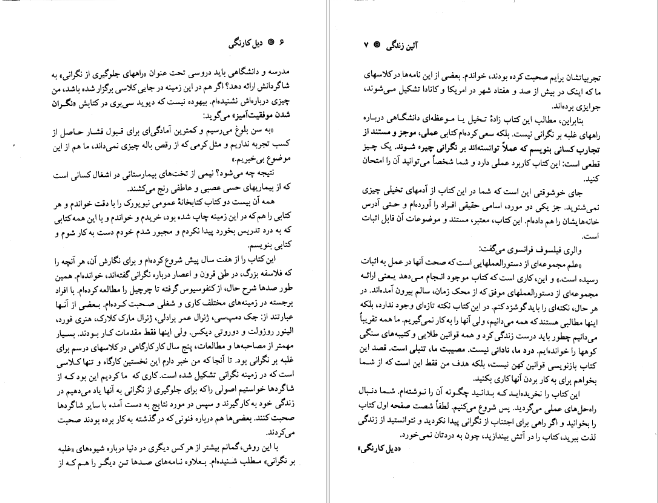 ۶ ◉ دیل کارنگی
مدرسه و دانشگاهی باید دروسی تحت عنوان «راههای جلوگیری از نگرانی» به
شاگردانش ارائه دهد؟ اگر هم در این زمینه در جایی کلاسی برگزار شده باشد، من
چیزی درباره‌اش نشنیده‌ام. بیهوده نیست که دیوید سی‌بری در کتابش «نگران
شدن موفقیت‌آمیز» می‌گوید:
«به سن بلوغ می‌رسیم و کمترین آمادگی‌ای برای قبول فشار حاصل از
کسب تجربه نداریم و مثل کرمی که از رقص باله چیزی نمی‌داند، ما هم از این
موضوع بی‌خبریم.»
نتیجه چه می‌شود؟ نیمی از تخت‌های بیمارستانی در اشغال کسانی است
که از بیماریهای حسی عصبی و عاطفی رنج می‌کشند.
همه آن بیست دو کتاب کتابخانهٔ عمومی نیویورک را دقت خواندم و هر
کتابی را هم که در این زمینه چاپ شده بود، خریدم و خواندم و با این همه کتابی
که به درد تدریس بخورد پیدا نکردم و مجبور شدم خودم دست به کار شوم و
کتابی بنویسم.
این کتاب را از هفت سال پیش شروع کرده‌ام و برای نگارش آن، هر آنچه را
که فلاسفه بزرگ، در طی قرون و اعصار درباره نگرانی گفته‌اند، خوانده‌ام. همین
طور صدها شرح حال، از کنفوسیوس گرفته تا چرچیل را مطالعه کرده‌ام. با افراد
برجسته در زمینه‌های مختلف کاری و شغلی صحبت کرده‌ام. بعضی از آنها
عبارتند از: جک دمپ‌سی، ژنرال عمر برادلی، ژنرال مارک کلارک، هنری فورد،
الینور روزولت و دوروتی دیکس. ولی اینها فقط مقدمات کار بودند. بسیار
مهمتر از مصاحبه‌ها و مطالعات، پنج سال کار کارگاهی در کلاسهای درسم برای
غلبه بر نگرانی بود. تا آنجا که من خبر دارم این نخستین کارگاه و تنها کلاسی
است که در زمینه نگرانی تشکیل شده است. کاری که ما کردیم این بود که از
شاگردها خواستیم اصولی را که برای جلوگیری از نگرانی به آنها یاد می‌دهیم در
زندگی خود به کار گیرند و سپس در مورد نتایج به دست آمده با سایر شاگردها
صحبت کنند. بعضی‌ها هم درباره فنونی که در گذشته به کار برده بودند صحبت
می‌کردند.
با این روش، گمانم بیشتر از هر کس دیگری در دنیا درباره شیوه‌های «غلبه
بر نگرانی» مطلب شنیده‌ام. بعلاوه نامه‌های صدها تن دیگر را هم که از
آئین زندگی ◉ ۷
تجربیاتشان برایم صحبت کرده بودند، خواندم. بعضی از این نامه‌ها در کلاسهای
ما که اینک در بیش از صد و هفتاد شهر در امریکا و کانادا تشکیل می‌شوند،
جوایزی برده‌اند.
بنابراین، مطالب این کتاب زادهٔ تخیل یا موعظه‌ای دانشگاهی درباره
راههای غلبه بر نگرانی نیست. بلکه سعی کرده‌ام کتابی عملی، موجز و مستند از
تجارب کسانی بنویسم که عملاً توانسته‌اند بر نگرانی چیره شوند. یک چیز
قطعی است: این کتاب کاربرد عملی دارد و شما شخصاً می‌توانید آن را امتحان
کنید.
جای خوشوقتی این است که شما در این کتاب از آدمهای تخیلی چیزی
نمی‌شنوید. جز یکی دو مورد، اسامی حقیقی افراد را آورده‌ام و حتی آدرس
خانه‌هایشان را هم داده‌ام. این کتاب، معتبر، مستند و موضوعات آن قابل اثبات
است.
والری فیلسوف فرانسوی می‌گفت:
«علم مجموعه‌ای از دستورالعملهایی است که صحت آنها در عمل به اثبات
رسیده است.» و این، کاری است که کتاب موجود انجام می‌دهد یعنی ارائه
مجموعه‌ای از دستورالعملهای موفق که از محک زمان، سالم بیرون آمده‌اند. در
هر حال، نکته‌ای را باید گوشزد کنم. در این کتاب نکته تازه‌ای وجود ندارد، بلکه
اینها مطالبی هستند که همه می‌دانیم، ولی آنها را به کار نمی‌گیریم. ما همه تقریباً
می‌دانیم چطور باید درست زندگی کرد و همه قوانین طلایی و کتیبه‌های سنگی
کوهها را خوانده‌ایم. درد ما، نادانی نیست. مصیبت ما، تنبلی است. قصد این
کتاب بازنویسی قوانین کهن نیست، بلکه هدف من فقط این است که از شما
بخواهم برای به کار بردن آنها کاری بکنید.
این کتاب را نخریده‌اید که بدانید چگونه آن را نوشته‌ام. شما دنبال
راه‌حل‌های عملی می‌گردید. پس شروع می‌کنیم. لطفاً شصت صفحه اول کتاب
را بخوانید و اگر راهی برای اجتناب از نگرانی پیدا نکردید و نتوانستید از زندگی
لذت ببرید، کتاب را در آتش بیندازید، چون به دردتان نمی‌خورد.
«دیل کارنگی»